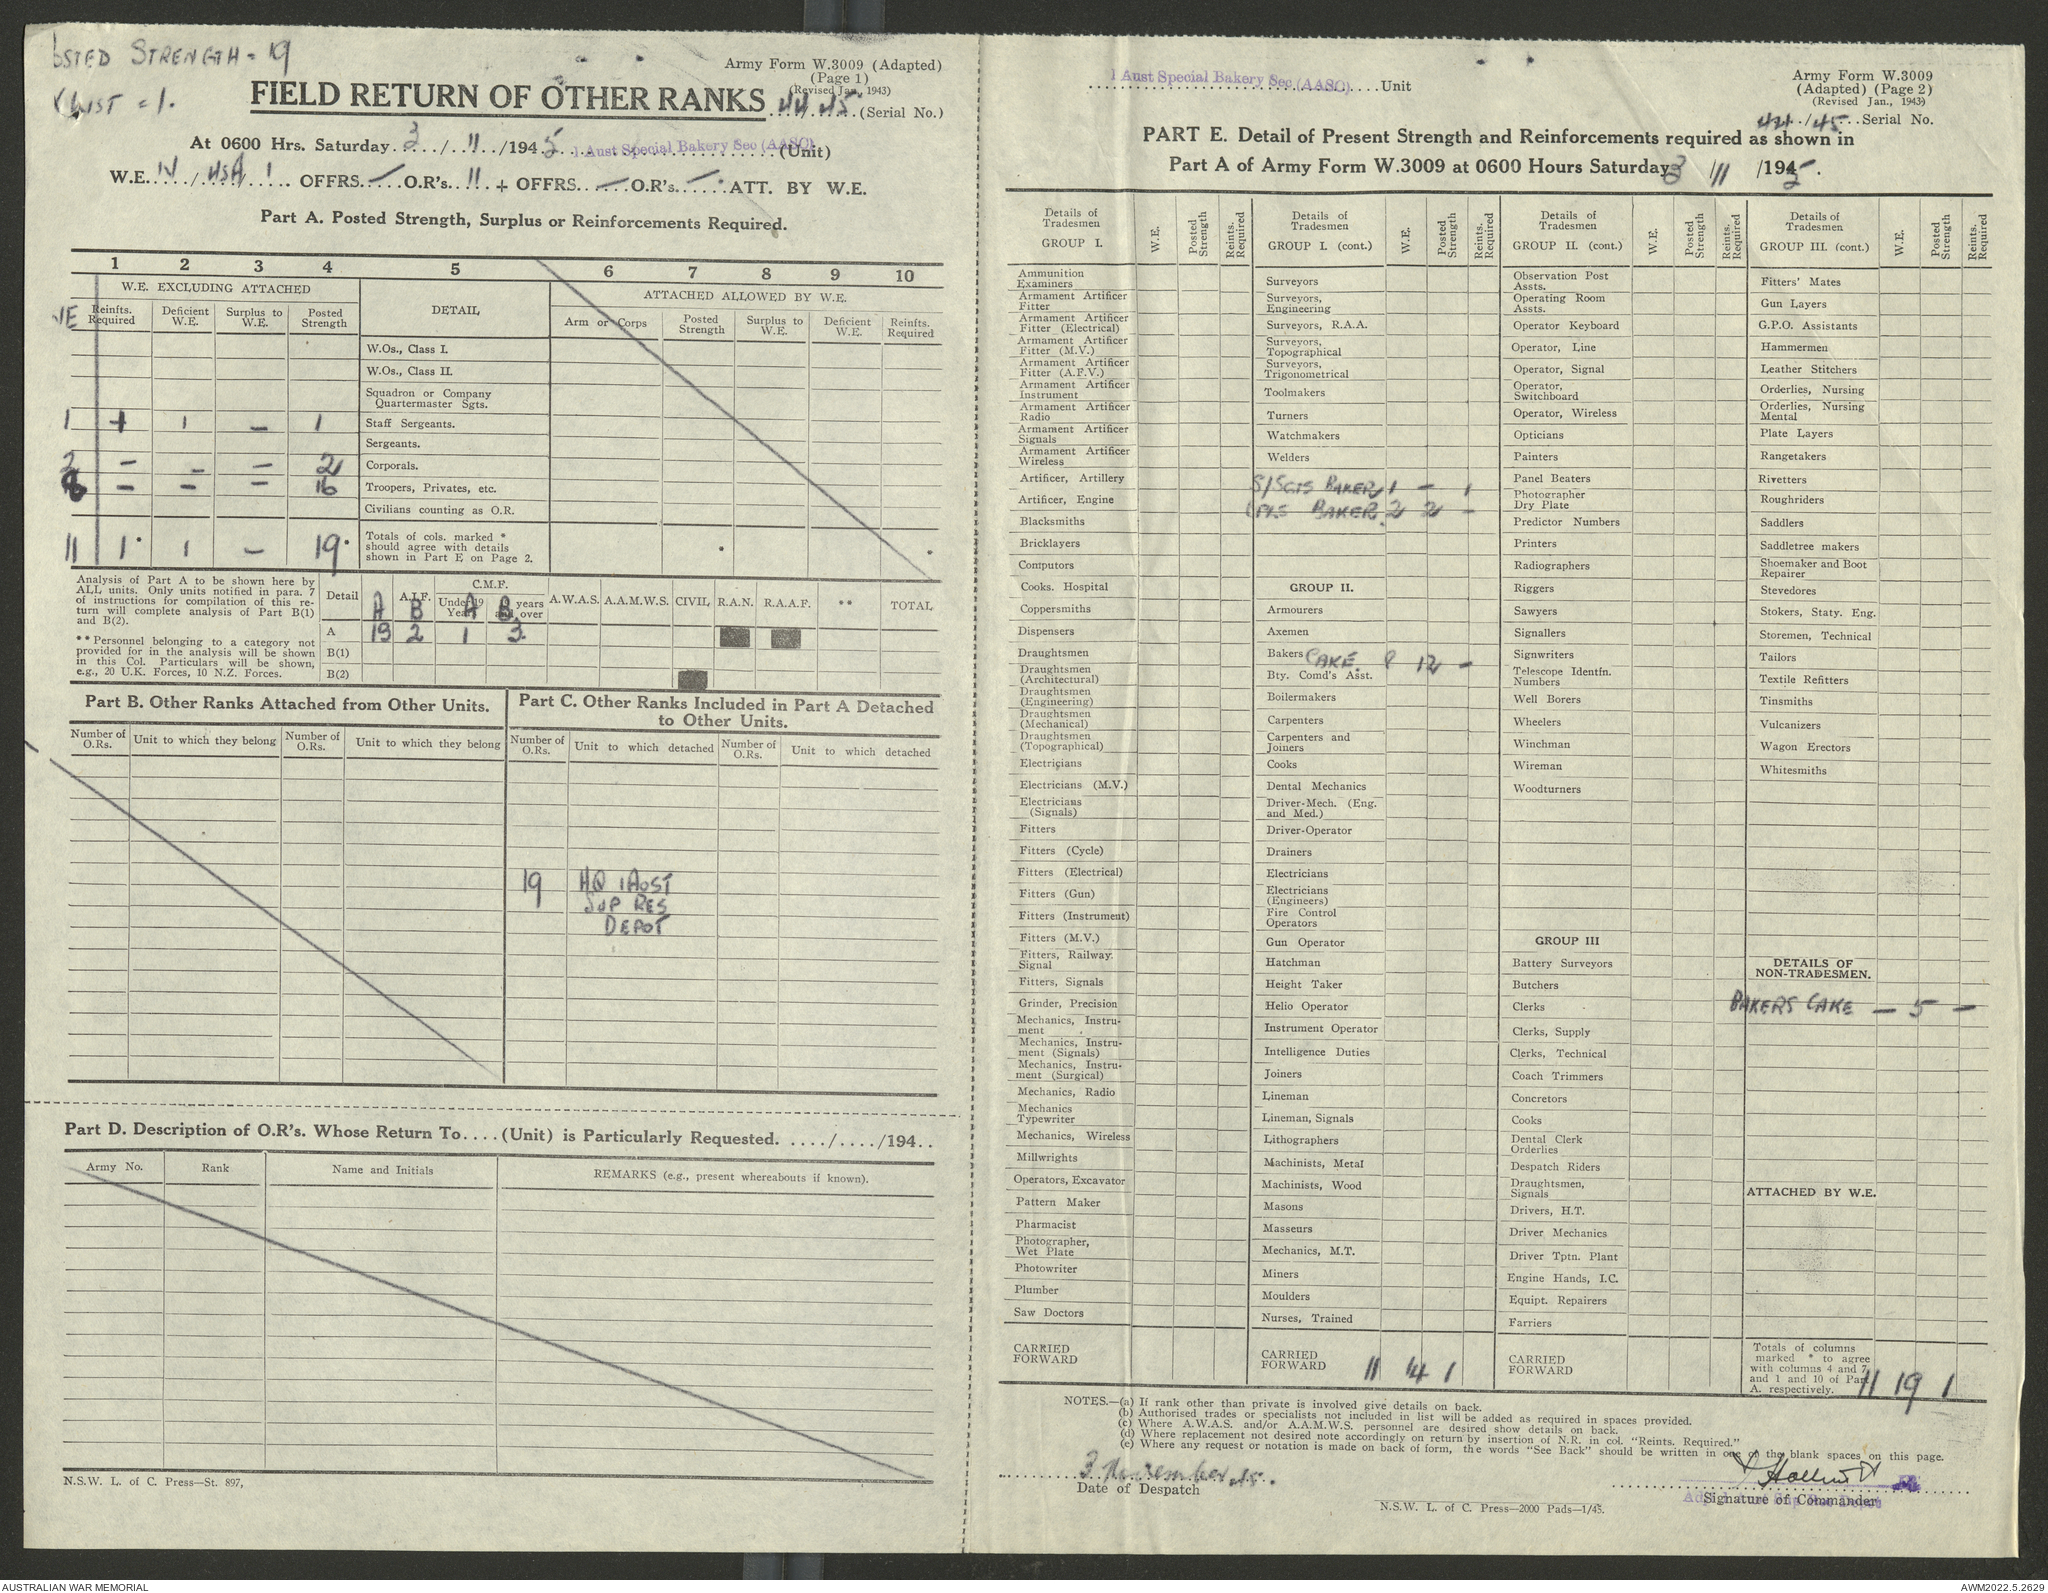 STRENGTH = 19
LIST = 1.
Army Form W.3009 (Adapted)
(Page 1)
(Revised Jan., 1943)
FIELD RETURN OF OTHER RANKS 44/45 (Serial No.)
At 0600 Hrs. Saturday 3/11/1945 1 Aust Special Bakery Sec (AASC) (Unit)
W.E. OFFRS — O.R's. 11 + OFFRS. — O.R's. — ATT. BY W.E.
Part A. Posted Strength, Surplus or Reinforcements Required.
1 2 3 4 5 6 7 8 9 10
W.E. EXCLUDING ATTACHED DETAIL ATTACHED ALLOWED BY W.E.
Reinfts. Required Deficient W.E. Surplus to W.E. Posted Strength Arm or Corps Posted Strength Surplus to W.E. Deficient W.E. Reinfts. Required
W.Os., Class I.
W.Os., Class II.
Squadron or Company Quartermaster Sgts.
1 1 — 1 Staff Sergeants.
Sergeants.
2 — — — 2 Corporals.
— — — 16 Troopers, Privates, etc.
Civilians counting as O.R.
11 1* 1 — 19* Totals of cols. marked * should agree with details shown in Part E on Page 2. * *
Analysis of Part A to be shown here by
ALL units. Only units notified in para. 7
of instructions for compilation of this re-
turn will complete analysis of Part B(1)
and B(2).
** Personnel belonging to a category not
provided for in the analysis will be shown
in this Col. Particulars will be shown,
e.g., 20 U.K. Forces, 10 N.Z. Forces.
Detail A.I.F. C.M.F. A.W.A.S. A.A.M.W.S. CIVIL R.A.N. R.A.A.F. ** TOTAL
A B A B
A 13 2 1 3
B(1)
B(2)
Part B. Other Ranks Attached from Other Units.
Number of O.Rs. Unit to which they belong Number of O.Rs. Unit to which they belong
Part C. Other Ranks Included in Part A Detached
to Other Units.
Number of O.Rs. Unit to which detached Number of O.Rs. Unit to which detached
19 HQ 1 AUST
SUP RES
DEPOT
Part D. Description of O.R's. Whose Return To....(Unit) is Particularly Requested. ...../...../194..
Army No. Rank Name and Initials REMARKS (e.g., present whereabouts if known).
N.S.W. L. of C. Press—St. 897,
1 Aust Special Bakery Sec (AASC) Unit
Army Form W.3009
(Adapted) (Page 2)
(Revised Jan., 1943)
44/45 Serial No.
PART E. Detail of Present Strength and Reinforcements required as shown in
Part A of Army Form W.3009 at 0600 Hours Saturday 3/11/1945.
Details of Tradesmen GROUP I. W.E. Posted Strength Reints. Required
Ammunition Examiners
Armament Artificer Fitter
Armament Artificer Fitter (Electrical)
Armament Artificer Fitter (M.V.)
Armament Artificer Fitter (A.F.V.)
Armament Artificer Instrument
Armament Artificer Radio
Armament Artificer Signals
Armament Artificer Wireless
Artificer, Artillery
Artificer, Engine
Blacksmiths
Bricklayers
Computors
Cooks. Hospital
Coppersmiths
Dispensers
Draughtsmen
Draughtsmen (Architectural)
Draughtsmen (Engineering)
Draughtsmen (Mechanical)
Draughtsmen (Topographical)
Electricians
Electricians (M.V.)
Electricians (Signals)
Fitters
Fitters (Cycle)
Fitters (Electrical)
Fitters (Gun)
Fitters (Instrument)
Fitters (M.V.)
Fitters, Railway. Signal
Fitters, Signals
Grinder, Precision
Mechanics, Instrument
Mechanics, Instrument (Signals)
Mechanics, Instrument (Surgical)
Mechanics, Radio
Mechanics Typewriter
Mechanics, Wireless
Millwrights
Operators, Excavator
Pattern Maker
Pharmacist
Photographer, Wet Plate
Photowriter
Plumber
Saw Doctors
CARRIED FORWARD
Details of Tradesmen GROUP I. (cont.) W.E. Posted Strength Reints. Required
Surveyors
Surveyors, Engineering
Surveyors, R.A.A.
Surveyors, Topographical
Surveyors, Trigonometrical
Toolmakers
Turners
Watchmakers
Welders
S/SGTS BAKER 1 — 1
CPLS BAKER 2 2 —
GROUP II.
Armourers
Axemen
Bakers CAKE 8 12 —
Bty. Comd's Asst.
Boilermakers
Carpenters
Carpenters and Joiners
Cooks
Dental Mechanics
Driver-Mech. (Eng. and Med.)
Driver-Operator
Drainers
Electricians
Electricians (Engineers)
Fire Control Operators
Gun Operator
Hatchman
Height Taker
Helio Operator
Instrument Operator
Intelligence Duties
Joiners
Lineman
Lineman, Signals
Lithographers
Machinists, Metal
Machinists, Wood
Masons
Masseurs
Mechanics, M.T.
Miners
Moulders
Nurses, Trained
CARRIED FORWARD 11 14 1
Details of Tradesmen GROUP II. (cont.) W.E. Posted Strength Reints. Required
Observation Post Assts.
Operating Room Assts.
Operator Keyboard
Operator, Line
Operator, Signal
Operator, Switchboard
Operator, Wireless
Opticians
Painters
Panel Beaters
Photographer Dry Plate
Predictor Numbers
Printers
Radiographers
Riggers
Sawyers
Signallers
Signwriters
Telescope Identfn. Numbers
Well Borers
Wheelers
Winchman
Wireman
Woodturners
GROUP III
Battery Surveyors
Butchers
Clerks
Clerks, Supply
Clerks, Technical
Coach Trimmers
Concretors
Cooks
Dental Clerk Orderlies
Despatch Riders
Draughtsmen, Signals
Drivers, H.T.
Driver Mechanics
Driver Tptn. Plant
Engine Hands, I.C.
Equipt. Repairers
Farriers
CARRIED FORWARD
Details of Tradesmen GROUP III. (cont.) W.E. Posted Strength Reints. Required
Fitters' Mates
Gun Layers
G.P.O. Assistants
Hammermen
Leather Stitchers
Orderlies, Nursing
Orderlies, Nursing Mental
Plate Layers
Rangetakers
Rivetters
Roughriders
Saddlers
Saddletree makers
Shoemaker and Boot Repairer
Stevedores
Stokers, Staty. Eng.
Storemen, Technical
Tailors
Textile Refitters
Tinsmiths
Vulcanizers
Wagon Erectors
Whitesmiths
DETAILS OF NON-TRADESMEN.
BAKERS CAKE — 5 —
ATTACHED BY W.E.
Totals of columns marked * to agree with columns 4 and 7 and 1 and 10 of Part A. respectively. 11 19 1
NOTES.—(a) If rank other than private is involved give details on back.
(b) Authorised trades or specialists not included in list will be added as required in spaces provided.
(c) Where A.W.A.S. and/or A.A.M.W.S. personnel are desired show details on back.
(d) Where replacement not desired note accordingly on return by insertion of N.R. in col. "Reints. Required."
(e) Where any request or notation is made on back of form, the words "See Back" should be written in one of the blank spaces on this page.
3 November 45.
Date of Despatch
Signature of Commander
N.S.W. L. of C. Press—2000 Pads—1/45.
AUSTRALIAN WAR MEMORIAL
AWM2022.5.2629